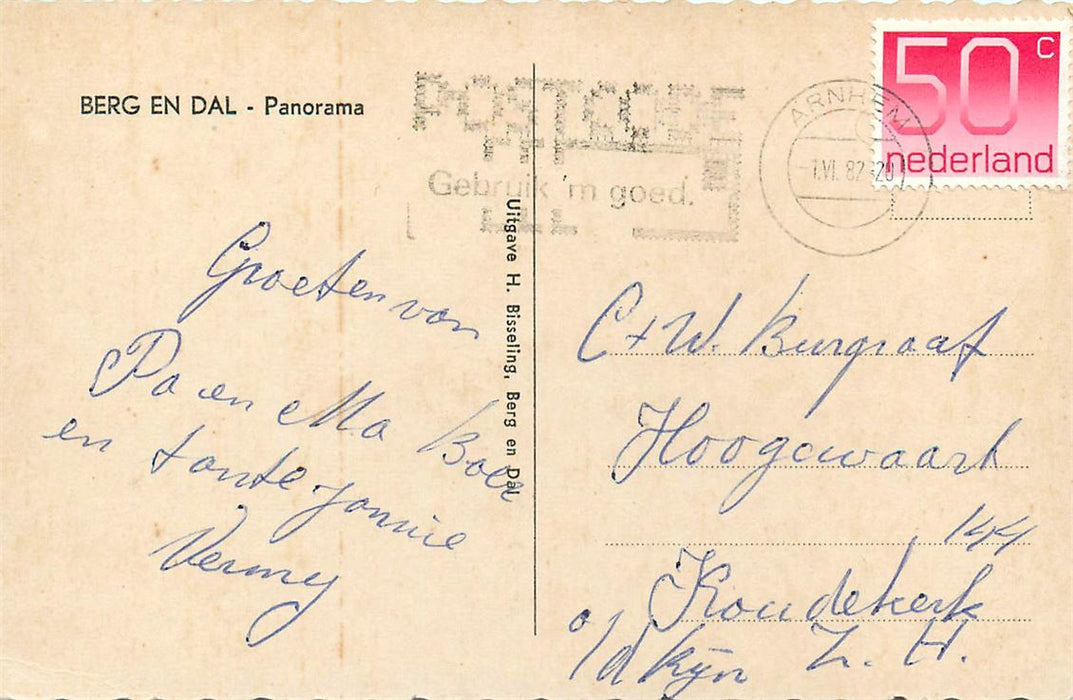 BERG EN DAL - Panorama
POSTCODE
Gebruik 'm goed.
ARNHEM
-1.VI.82 - 20
50 C
nederland
Uitgave H. Bisseling, Berg en Dal
Groeten van
Pa en Ma Boer
en tante Jannie
Vermey
C + W. Burgraaf
Hoogewaart
144
Koudekerk
a/d Rijn Z. H.